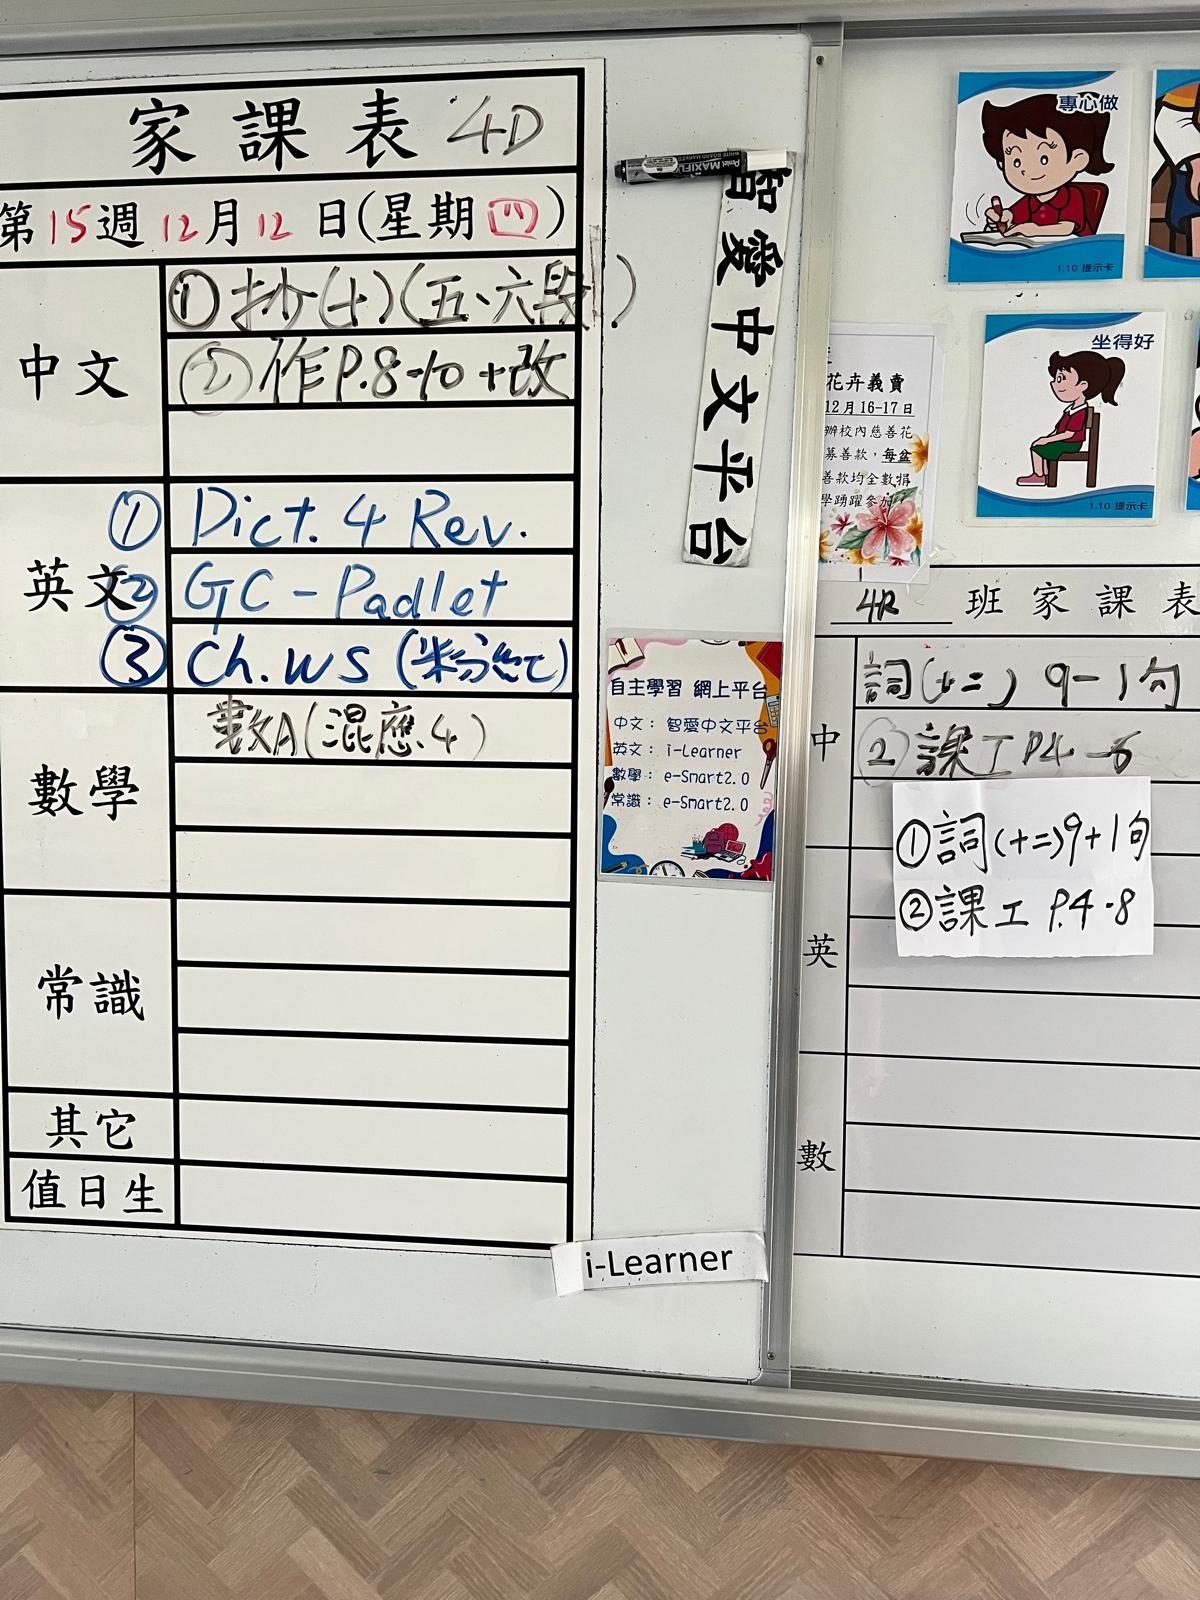 家課表 4D
第15週12月12日(星期四)
中文
① 抄(十)(五、六段)
② 作P.8-10+改
英文
① Dict. 4 Rev.
② GC - Padlet
③ Ch. WS (粉紅)
數學
數A(混應.4)
常識
其它
值日生
智愛中文平台
自主學習 網上平台
中文： 智愛中文平台
英文： i-Learner
數學： e-Smart2.0
常識： e-Smart2.0
i-Learner
專心做
1.10 提示卡
坐得好
1.10 提示卡
花卉義賣
12月16-17日
辦校內慈善花
募善款，每盆
善款均全數捐
學踴躍參加
班家課表
中
詞(十二) 9-1句
② 課工 P4-6
① 詞(十二)9+1句
② 課工 P.4-8
英
數